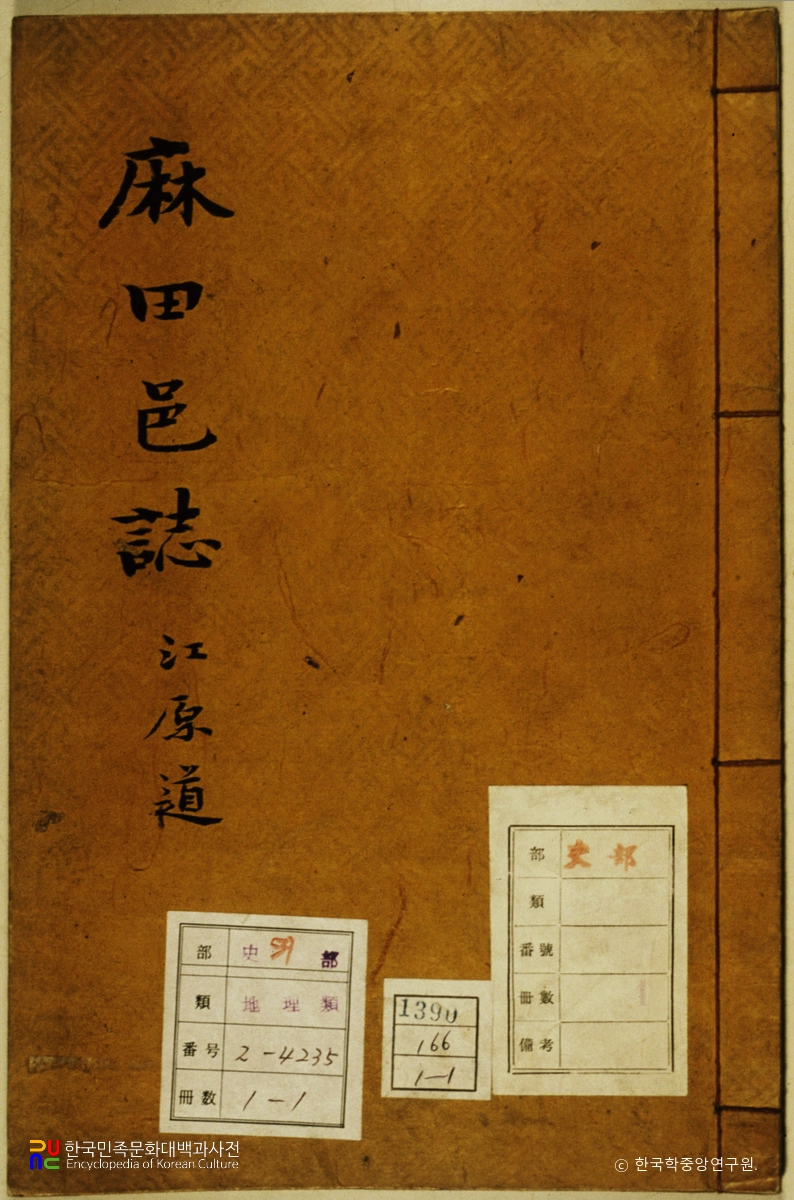 麻田邑誌
江原道
部 史 部
類 地理類
番号 2-4235
冊数 1-1
1390
166
1-1
部 史部
類
番號
冊數 1
備考
한국민족문화대백과사전
Encyclopedia of Korean Culture
© 한국학중앙연구원.